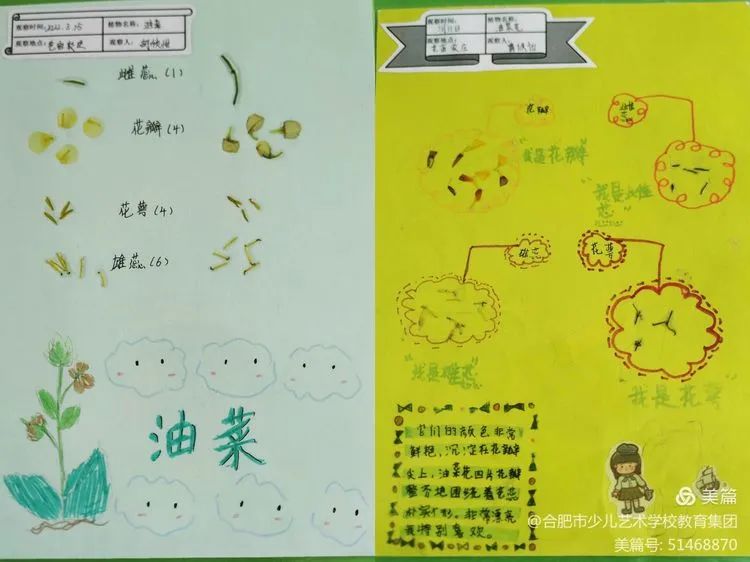 观察时间：2022.3.15
植物名称：油菜
观察地点：
观察人：
雌蕊（1）
花瓣（4）
花萼（4）
雄蕊（6）
油菜
观察时间：
植物名称：油菜花
观察地点：
观察人：
花瓣
雌蕊
"我是花瓣"
"我是雌蕊"
雄蕊
花萼
"我是雄蕊"
"我是花萼"
它们的颜色非常
鲜艳，沉淀在花瓣
尖上，油菜花四片花瓣
整齐地围绕着花蕊
非常漂亮
我特别喜欢。
美篇
@合肥市少儿艺术学校教育集团
美篇号：51468870